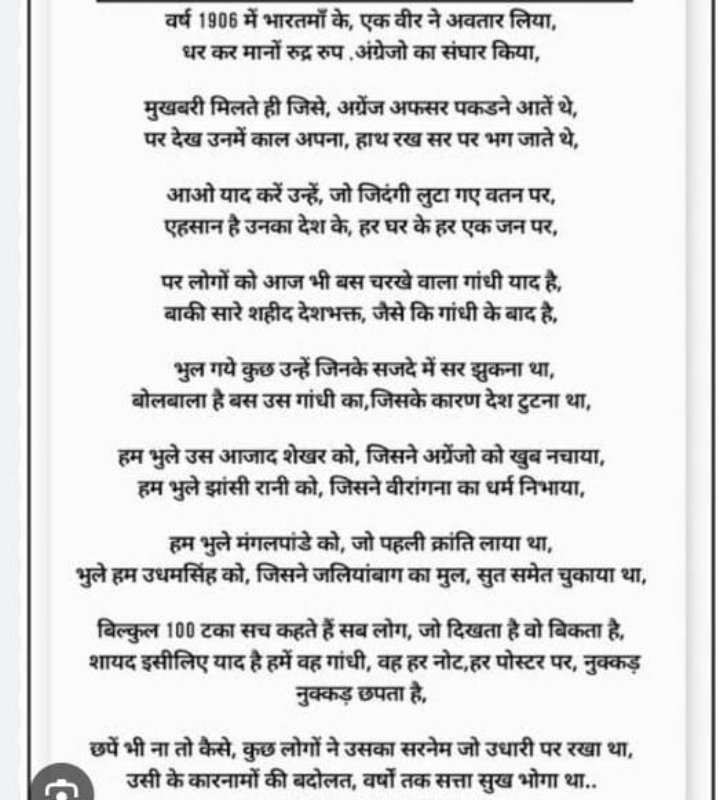 वर्ष 1906 में भारतमाँ के, एक वीर ने अवतार लिया,
धर कर मानों रुद्र रुप .अंग्रेजो का संघार किया,
मुखबरी मिलते ही जिसे, अग्रेंज अफसर पकडने आतें थे,
पर देख उनमें काल अपना, हाथ रख सर पर भग जाते थे,
आओ याद करें उन्हें, जो जिदंगी लुटा गए वतन पर,
एहसान है उनका देश के, हर घर के हर एक जन पर,
पर लोगों को आज भी बस चरखे वाला गांधी याद है,
बाकी सारे शहीद देशभक्त, जैसे कि गांधी के बाद है,
भुल गये कुछ उन्हें जिनके सजदे में सर झुकना था,
बोलबाला है बस उस गांधी का,जिसके कारण देश टुटना था,
हम भुले उस आजाद शेखर को, जिसने अग्रेंजो को खुब नचाया,
हम भुले झांसी रानी को, जिसने वीरांगना का धर्म निभाया,
हम भुले मंगलपांडे को, जो पहली क्रांति लाया था,
भुले हम उधमसिंह को, जिसने जलियांबाग का मुल, सुत समेत चुकाया था,
बिल्कुल 100 टका सच कहते हैं सब लोग, जो दिखता है वो बिकता है,
शायद इसीलिए याद है हमें वह गांधी, वह हर नोट,हर पोस्टर पर, नुक्कड़
नुक्कड़ छपता है,
छपें भी ना तो कैसे, कुछ लोगों ने उसका सरनेम जो उधारी पर रखा था,
उसी के कारनामों की बदोलत, वर्षो तक सत्ता सुख भोगा था..